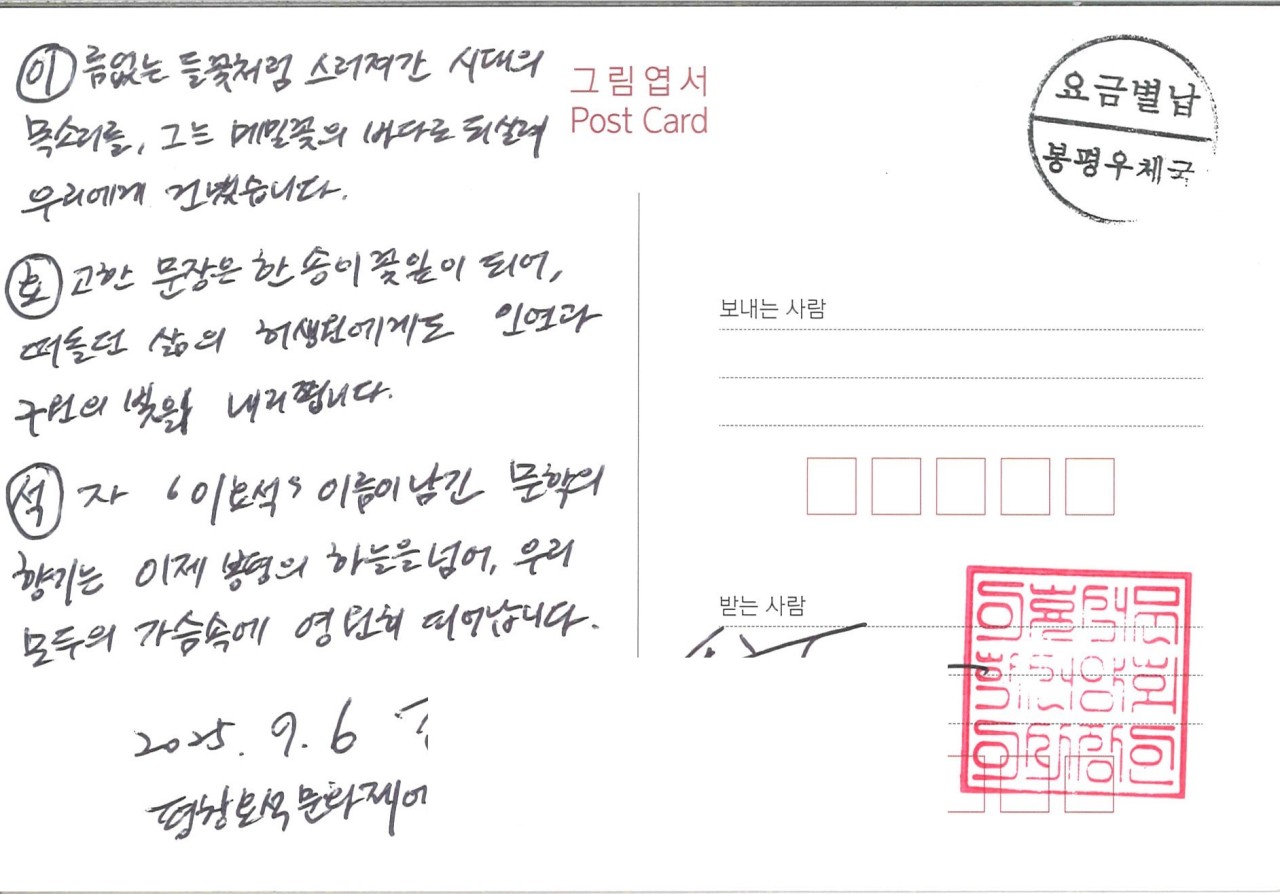 이름없는 들꽃처럼 스러져간 시대의
목소리를, 그는 메밀꽃의 바다로 되살려
우리에게 건넸습니다.
효고한 문장은 한 송이 꽃잎이 되어,
떠돌던 삶의 허생원에게도 인연과
구원의 빛을 내리쬡니다.
석자 '이효석' 이름이 남긴 문학의
향기는 이제 봉평의 하늘을 넘어, 우리
모두의 가슴속에 영원히 피어납니다.
2025. 9. 6
평창효석문화제에
그림엽서
Post Card
요금별납
봉평우체국
보내는 사람
받는 사람